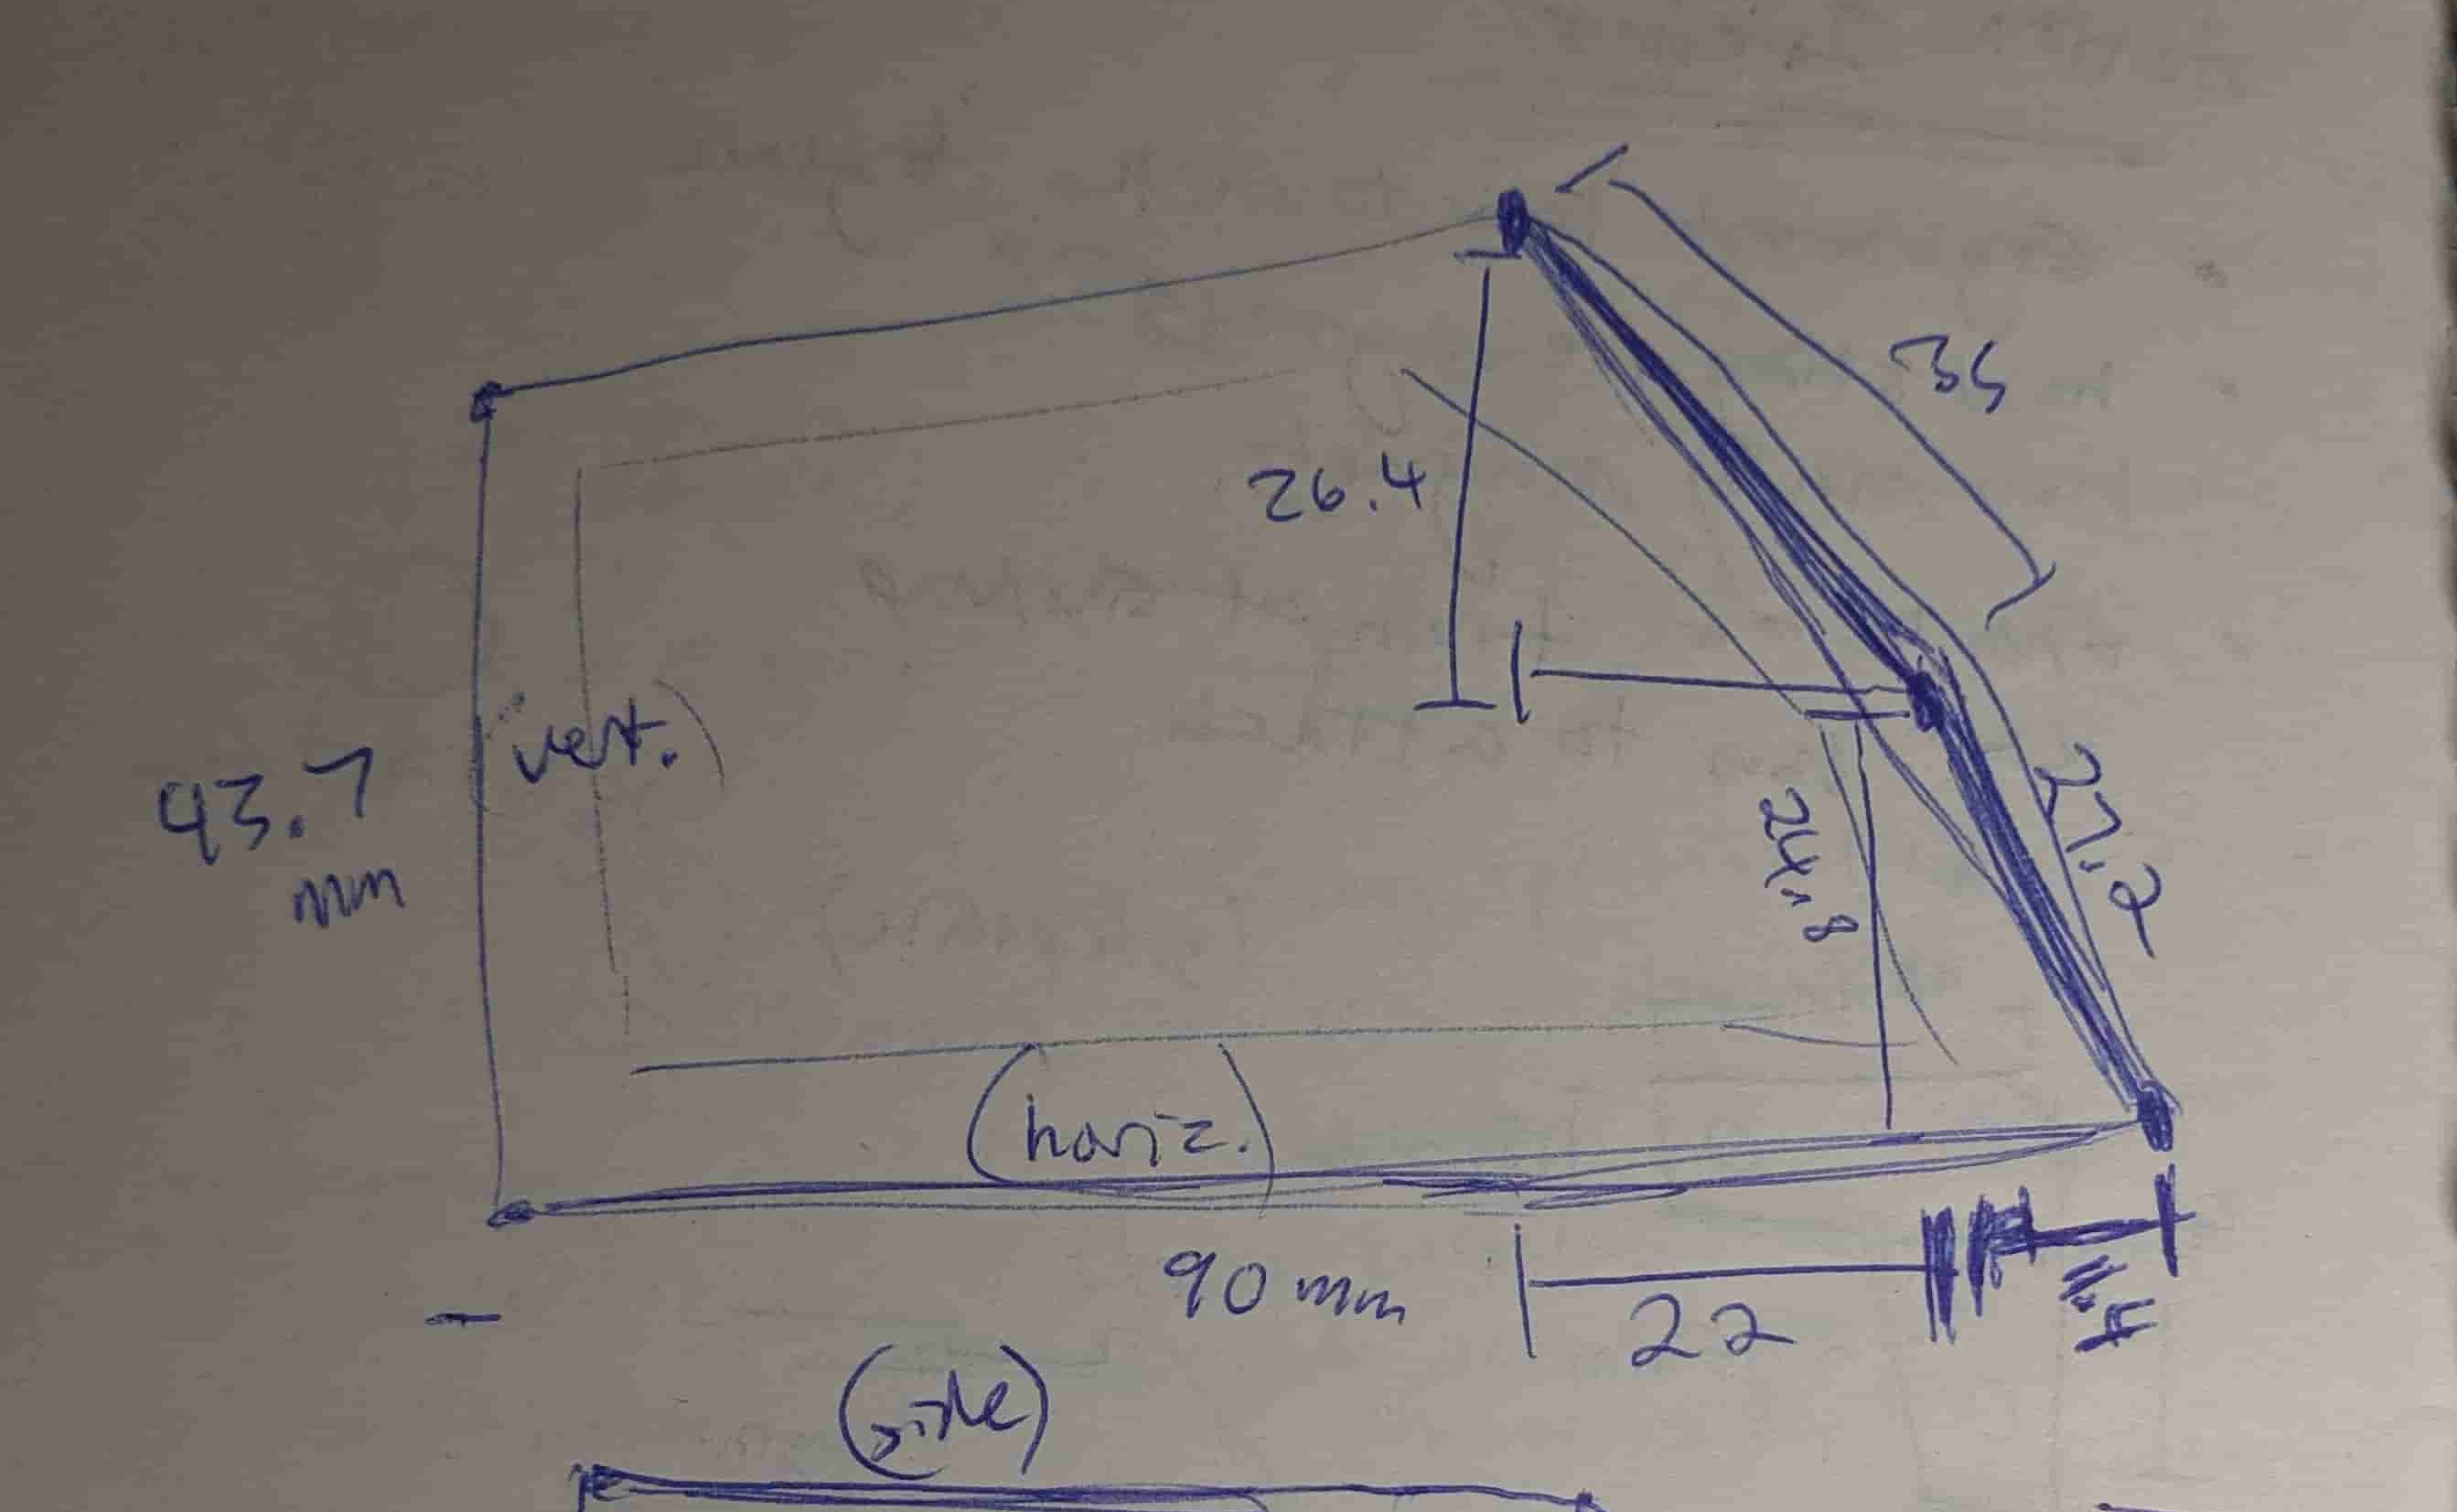 35
26.4
(vert.)
43.7
mm
27.2
24.8
(horiz.)
90 mm
22
(side)